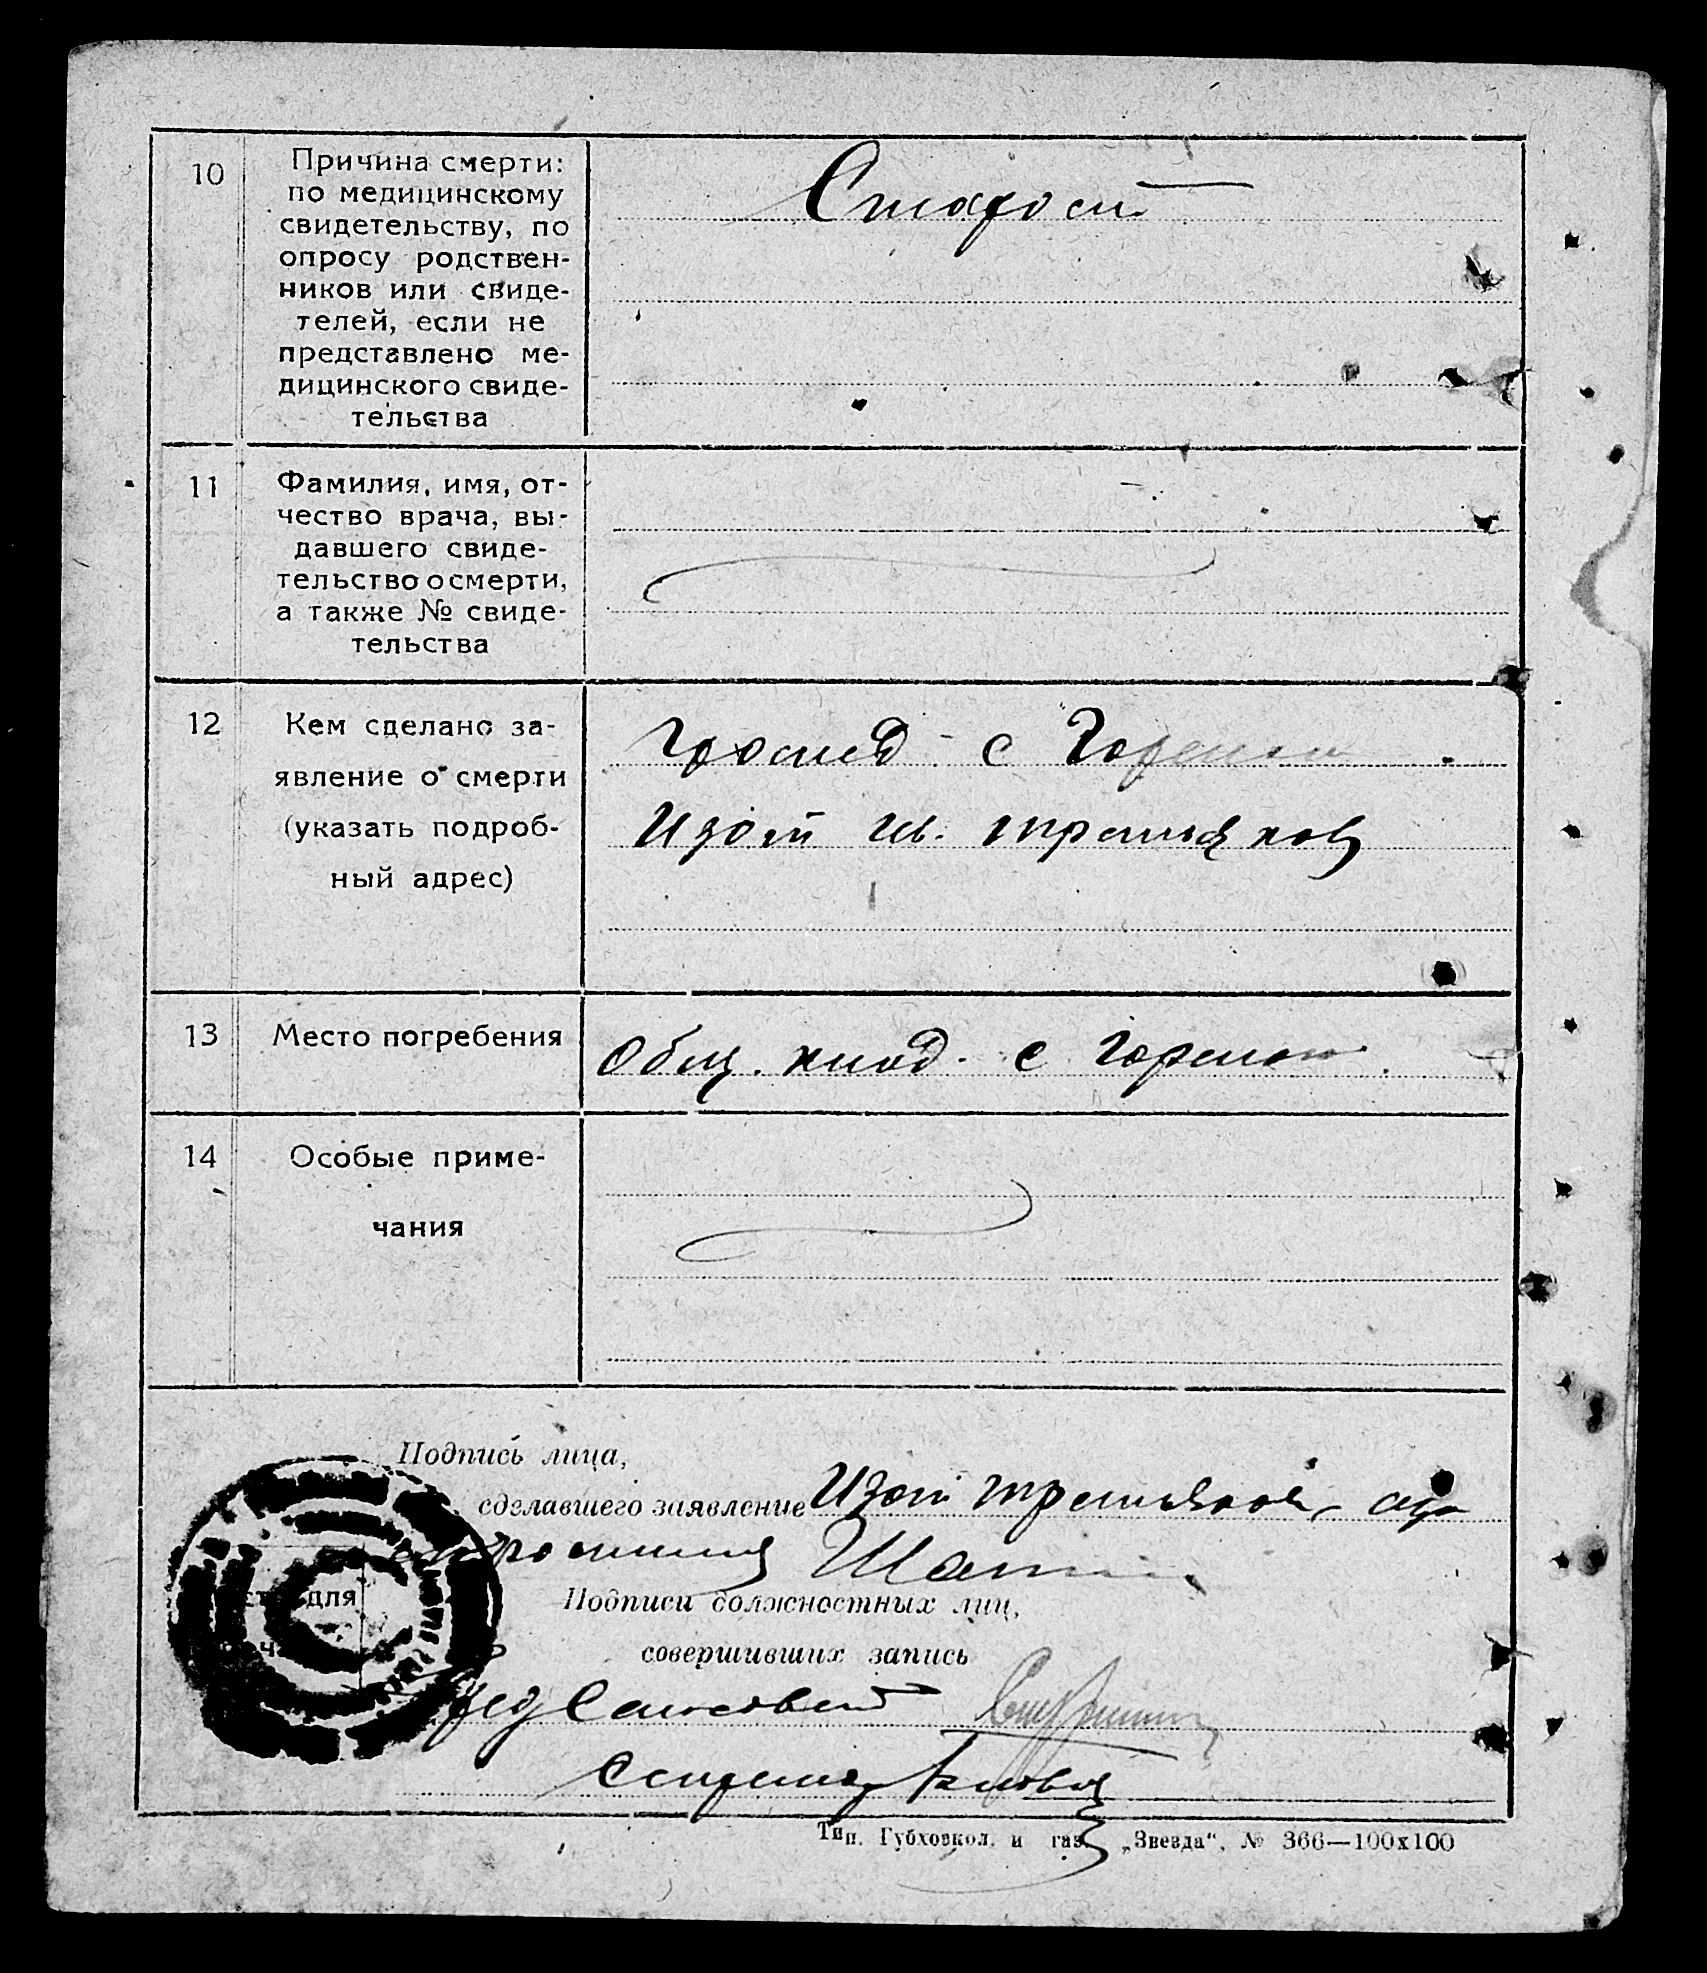 10
Причина смерти:
по медицинскому
свидетельству, по
опросу родствен-
ников или свиде-
телей, если не
представлено ме-
дицинского свиде-
тельства
Старост
11
Фамилия, имя, от-
чество врача, вы-
давшего свиде-
тельство о смерти,
а также № свиде-
тельства
12
Кем сделано за-
явление о смерти
(указать подроб-
ный адрес)
с
Изот Ив. Третьяков
13
Место погребения
Общ. клад. с
14
Особые приме-
чания
Подпись лица,
сделавшего заявление Изот Третьяков
Подписи должностных лиц,
совершивших запись
Сельсовет
Тип. Губховкол. и газ. „Звезда“, № 366—100х100